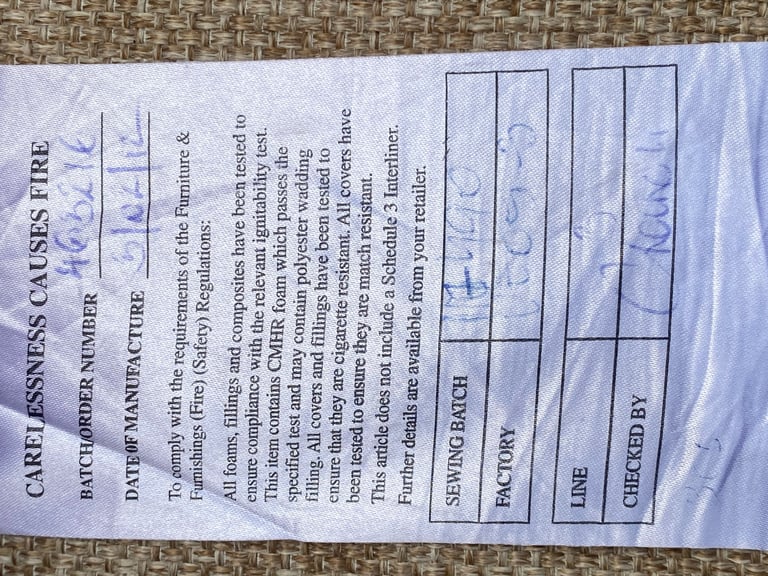 CARELESSNESS CAUSES FIRE
BATCH/ORDER NUMBER
DATE OF MANUFACTURE
To comply with the requirements of the Furniture &
Furnishings (Fire) (Safety) Regulations:
All foams, fillings and composites have been tested to
ensure compliance with the relevant ignitability test.
This item contains CMHR foam which passes the
specified test and may contain polyester wadding
filling. All covers and fillings have been tested to
ensure that they are cigarette resistant. All covers have
been tested to ensure they are match resistant.
This article does not include a Schedule 3 Interliner.
Further details are available from your retailer.
SEWING BATCH
FACTORY
LINE
CHECKED BY